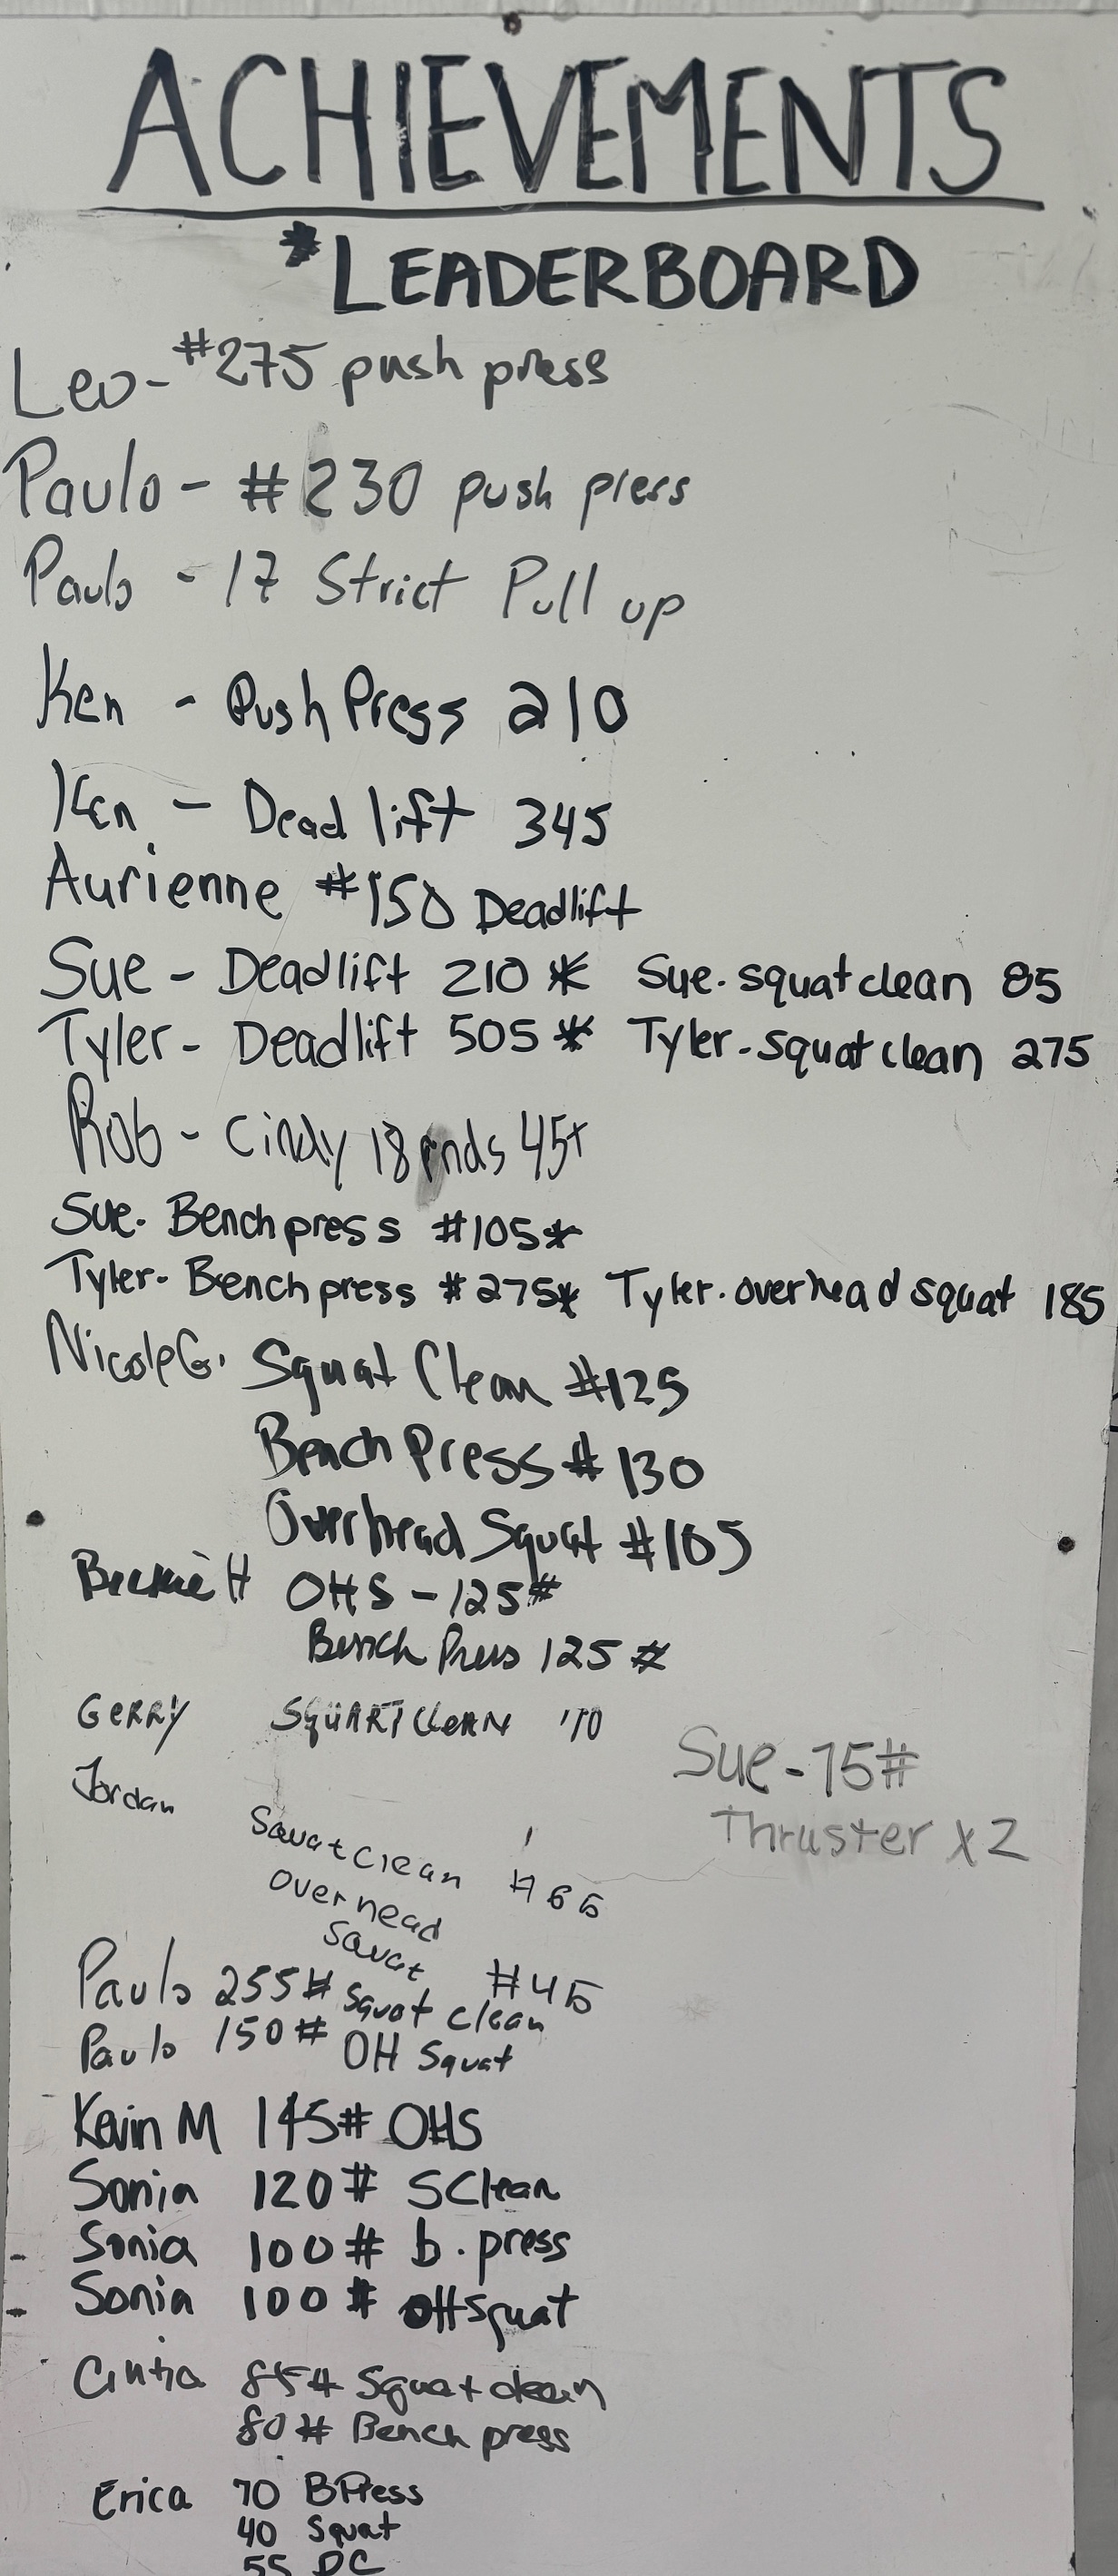 ACHIEVEMENTS
*LEADERBOARD
Leo - #275 push press
Paulo - #230 push press
Paulo - 17 Strict Pull up
Ken - Push Press 210
Ken - Dead lift 345
Aurienne #150 Deadlift
Sue - Deadlift 210 * Sue. squat clean 85
Tyler - Deadlift 505 * Tyler. squat clean 275
Rob - Cindy 18 rnds 45+
Sue. Bench press #105*
Tyler. Bench press #275* Tyler. overhead squat 185
Nicole G. Squat Clean #125
Bench Press #130
Overhead Squat #105
H OHS - 125#
Bench Press 125#
GERRY SQUART CLEAN 110
Jordan
Sue - 75#
Thruster x 2
Squat Clean #65
overhead
Squat #45
Paulo 255# Squat clean
Paulo 150# OH Squat
Kevin M 145# OHS
Sonia 120# SClean
Sonia 100# b. press
Sonia 100# OHSquat
Cintia 85# Squat clean
80# Bench press
Erica 70 BPress
40 Squat
55 DC